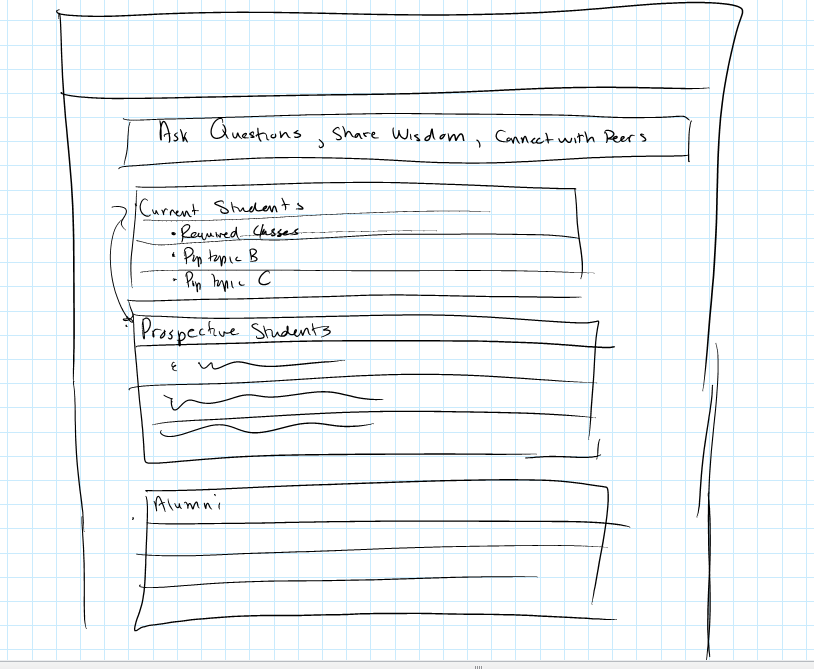 Ask Questions, Share Wisdom, Connect with Peers
Current Students
• Required Classes
• Pop topic B
• Pop topic C
Prospective Students
Alumni